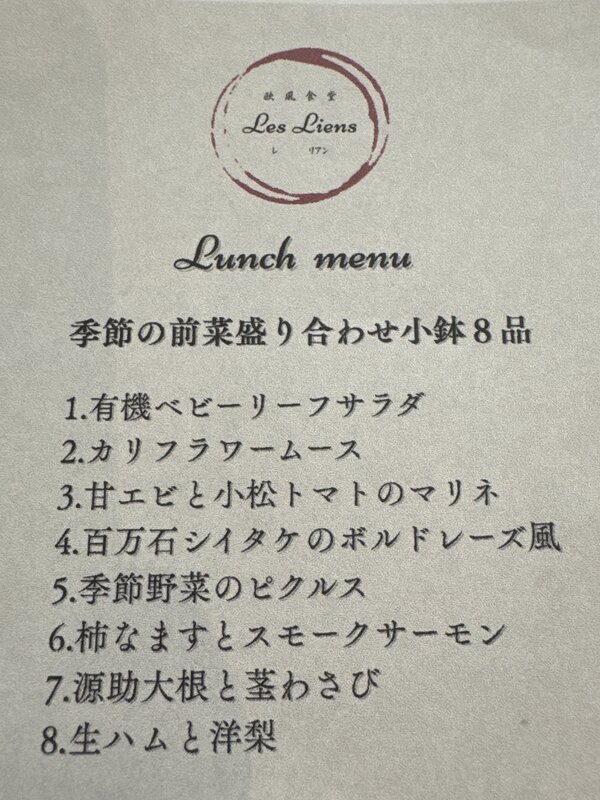 欧風食堂
Les Liens
レ リアン
Lunch menu
季節の前菜盛り合わせ小鉢８品
1.有機ベビーリーフサラダ
2.カリフラワームース
3.甘エビと小松トマトのマリネ
4.百万石シイタケのボルドレーズ風
5.季節野菜のピクルス
6.柿なますとスモークサーモン
7.源助大根と茎わさび
8.生ハムと洋梨